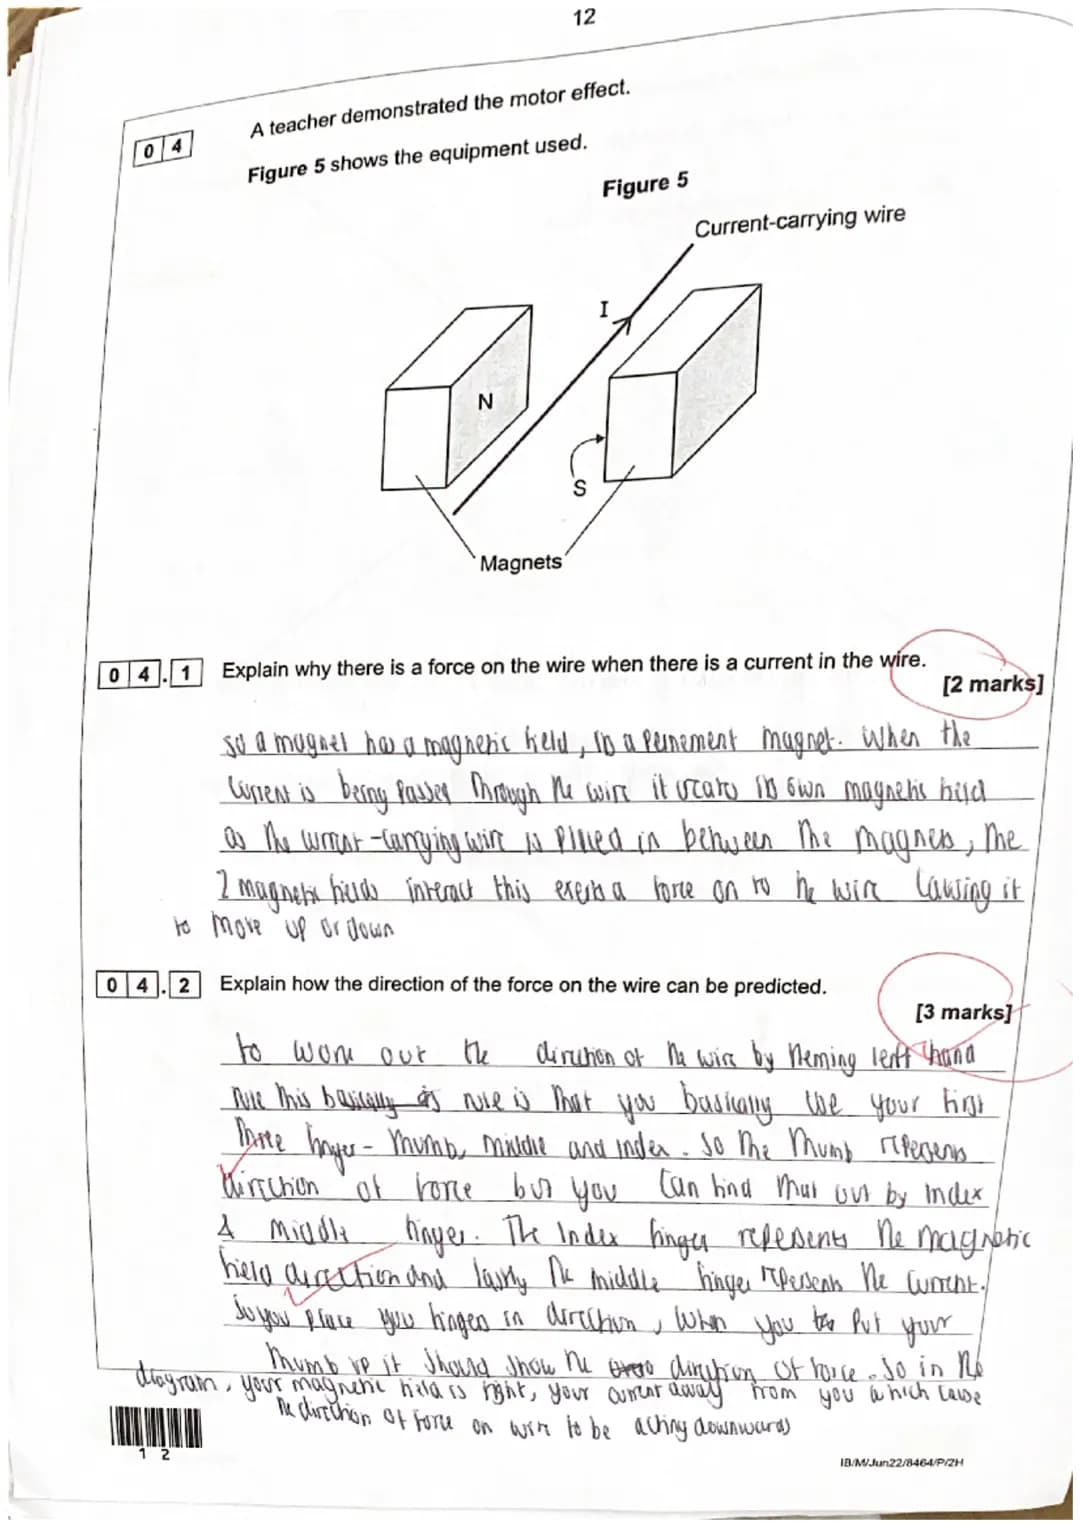 12
0 4
A teacher demonstrated the motor effect.
Figure 5 shows the equipment used.
Figure 5
Current-carrying wire
I
N
S
Magnets
0 4 . 1 Explain why there is a force on the wire when there is a current in the wire.
[2 marks]
so a magnet has a magnetic field, is a permement magnet. When the
current is being passed through the wire it creats its own magnetic field
as the current-carrying wire is placed in between the magnets, the
2 magnetic fields interact this exerts a force on to the wire causing it
to move up or down
0 4 . 2 Explain how the direction of the force on the wire can be predicted.
[3 marks]
to work out the direction of the wire by fleming left hand
rule this basically is rule is that you basically use your first
three finger - thumb, middle and index. so the thumb represents
direction of force but you can find that out by index
& middle finger. The Index finger repesents the magnetic
field direction and lastly the middle finger represents the current.
so you place your fingers in direction, when you put your
thumb up it should show the direction of force. So in the
diagram, your magnetic field is right, your current away from you which cause
the direction of force on wire to be acting downwards
1 2
IB/M/Jun22/8464/P/2H